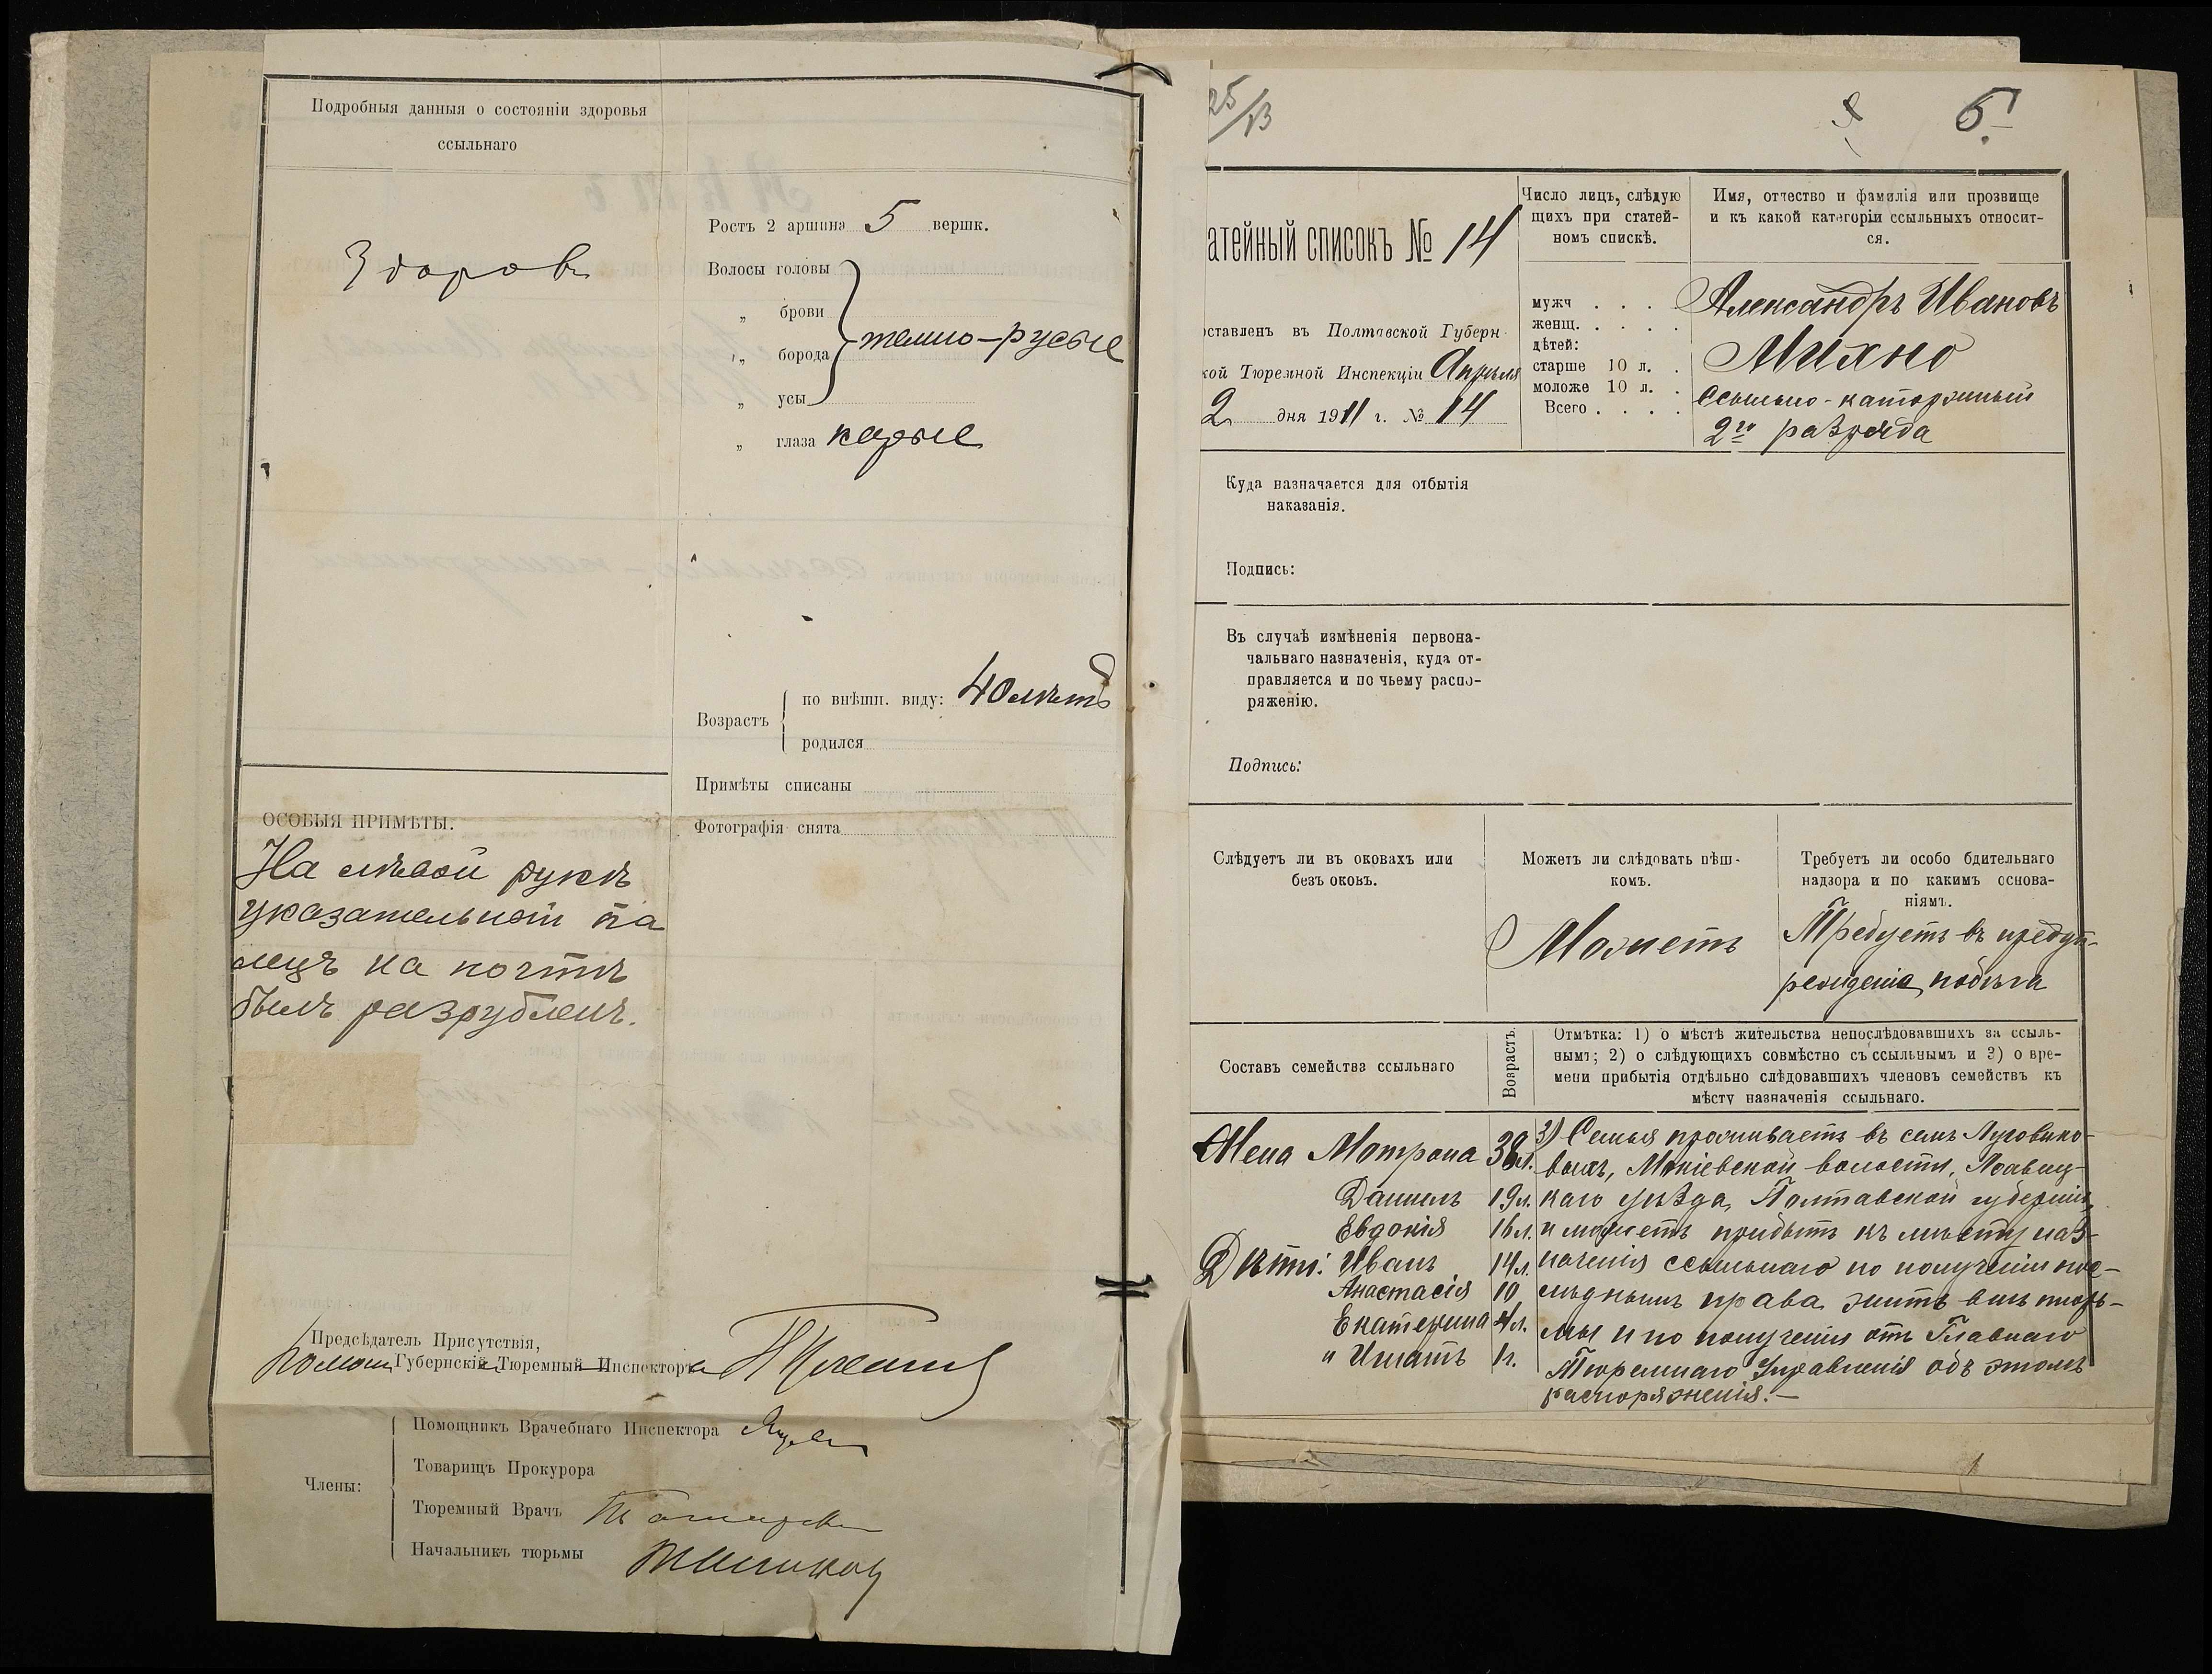 Подробныя данныя о состояніи здоровья
ссыльнаго
Здоровъ
Ростъ 2 аршина 5 вершк.
Волосы головы
„ брови
„ борода темно-русые
„ усы
„ глаза карые
Возрастъ
по внѣшн. виду: 40 лѣтъ
родился
Примѣты списаны
Фотографія снята
ОСОБЫЯ ПРИМѢТЫ.
На лѣвой рукѣ
указательной па
лецъ на ногтѣ
былъ разрубленъ.
Предсѣдатель Присутствія,
Помощ. Губернскій Тюремный Инспектора
Члены:
Помощникъ Врачебнаго Инспектора
Товарищъ Прокурора
Тюремный Врачъ
Начальникъ тюрьмы
25/13
5
атейный списокъ № 14
оставленъ въ Полтавской Губерн
кой Тюремной Инспекціи Апрѣля
2 дня 1911 г. № 14
Число лицъ, слѣдую
щихъ при статей-
номъ спискѣ.
мужч . . .
женщ. . . . .
дѣтей:
старше 10 л. .
моложе 10 л. .
Всего . . . .
Имя, отчество и фамилія или прозвище
и къ какой категоріи ссыльныхъ относит-
ся.
Александръ Ивановъ
Михно
Ссыльно-каторжный
2го разряда
Куда назначается для отбытія
наказанія.
Подпись:
Въ случаѣ измѣненія первона-
чальнаго назначенія, куда от-
правляется и по чьему распо-
ряженію.
Подпись:
Слѣдуетъ ли въ оковахъ или
безъ оковъ.
Можетъ ли слѣдовать пѣш-
комъ.
Можетъ
Требуетъ ли особо бдительнаго
надзора и по какимъ основа-
ніямъ.
Требуетъ въ предуп-
режденіе побѣга
Составъ семейства ссыльнаго
Возрастъ.
Отмѣтка: 1) о мѣстѣ жительства непослѣдовавшихъ за ссыль-
нымъ; 2) о слѣдующихъ совмѣстно съ ссыльнымъ и 3) о вре-
мени прибытія отдѣльно слѣдовавшихъ членовъ семействъ къ
мѣсту назначенія ссыльнаго.
Жена Мотрона 38 л.
Даніилъ 19 л.
Евдокія 16 л.
Дѣти: Иванъ 14 л.
Анастасія 10
Екатерина 4 л.
и Игнатъ 1 г.
3) Семья проживаетъ въ селѣ Луговико-
выхъ, волости,
каго уѣзда, Полтавской губерніи,
и можетъ прибыть къ мѣсту наз-
наченія ссыльнаго по полученіи пос-
лѣднимъ права жить внѣ тюрь-
мы и по полученіи отъ Главнаго
Тюремнаго Управленія объ этомъ
распоряженія.—